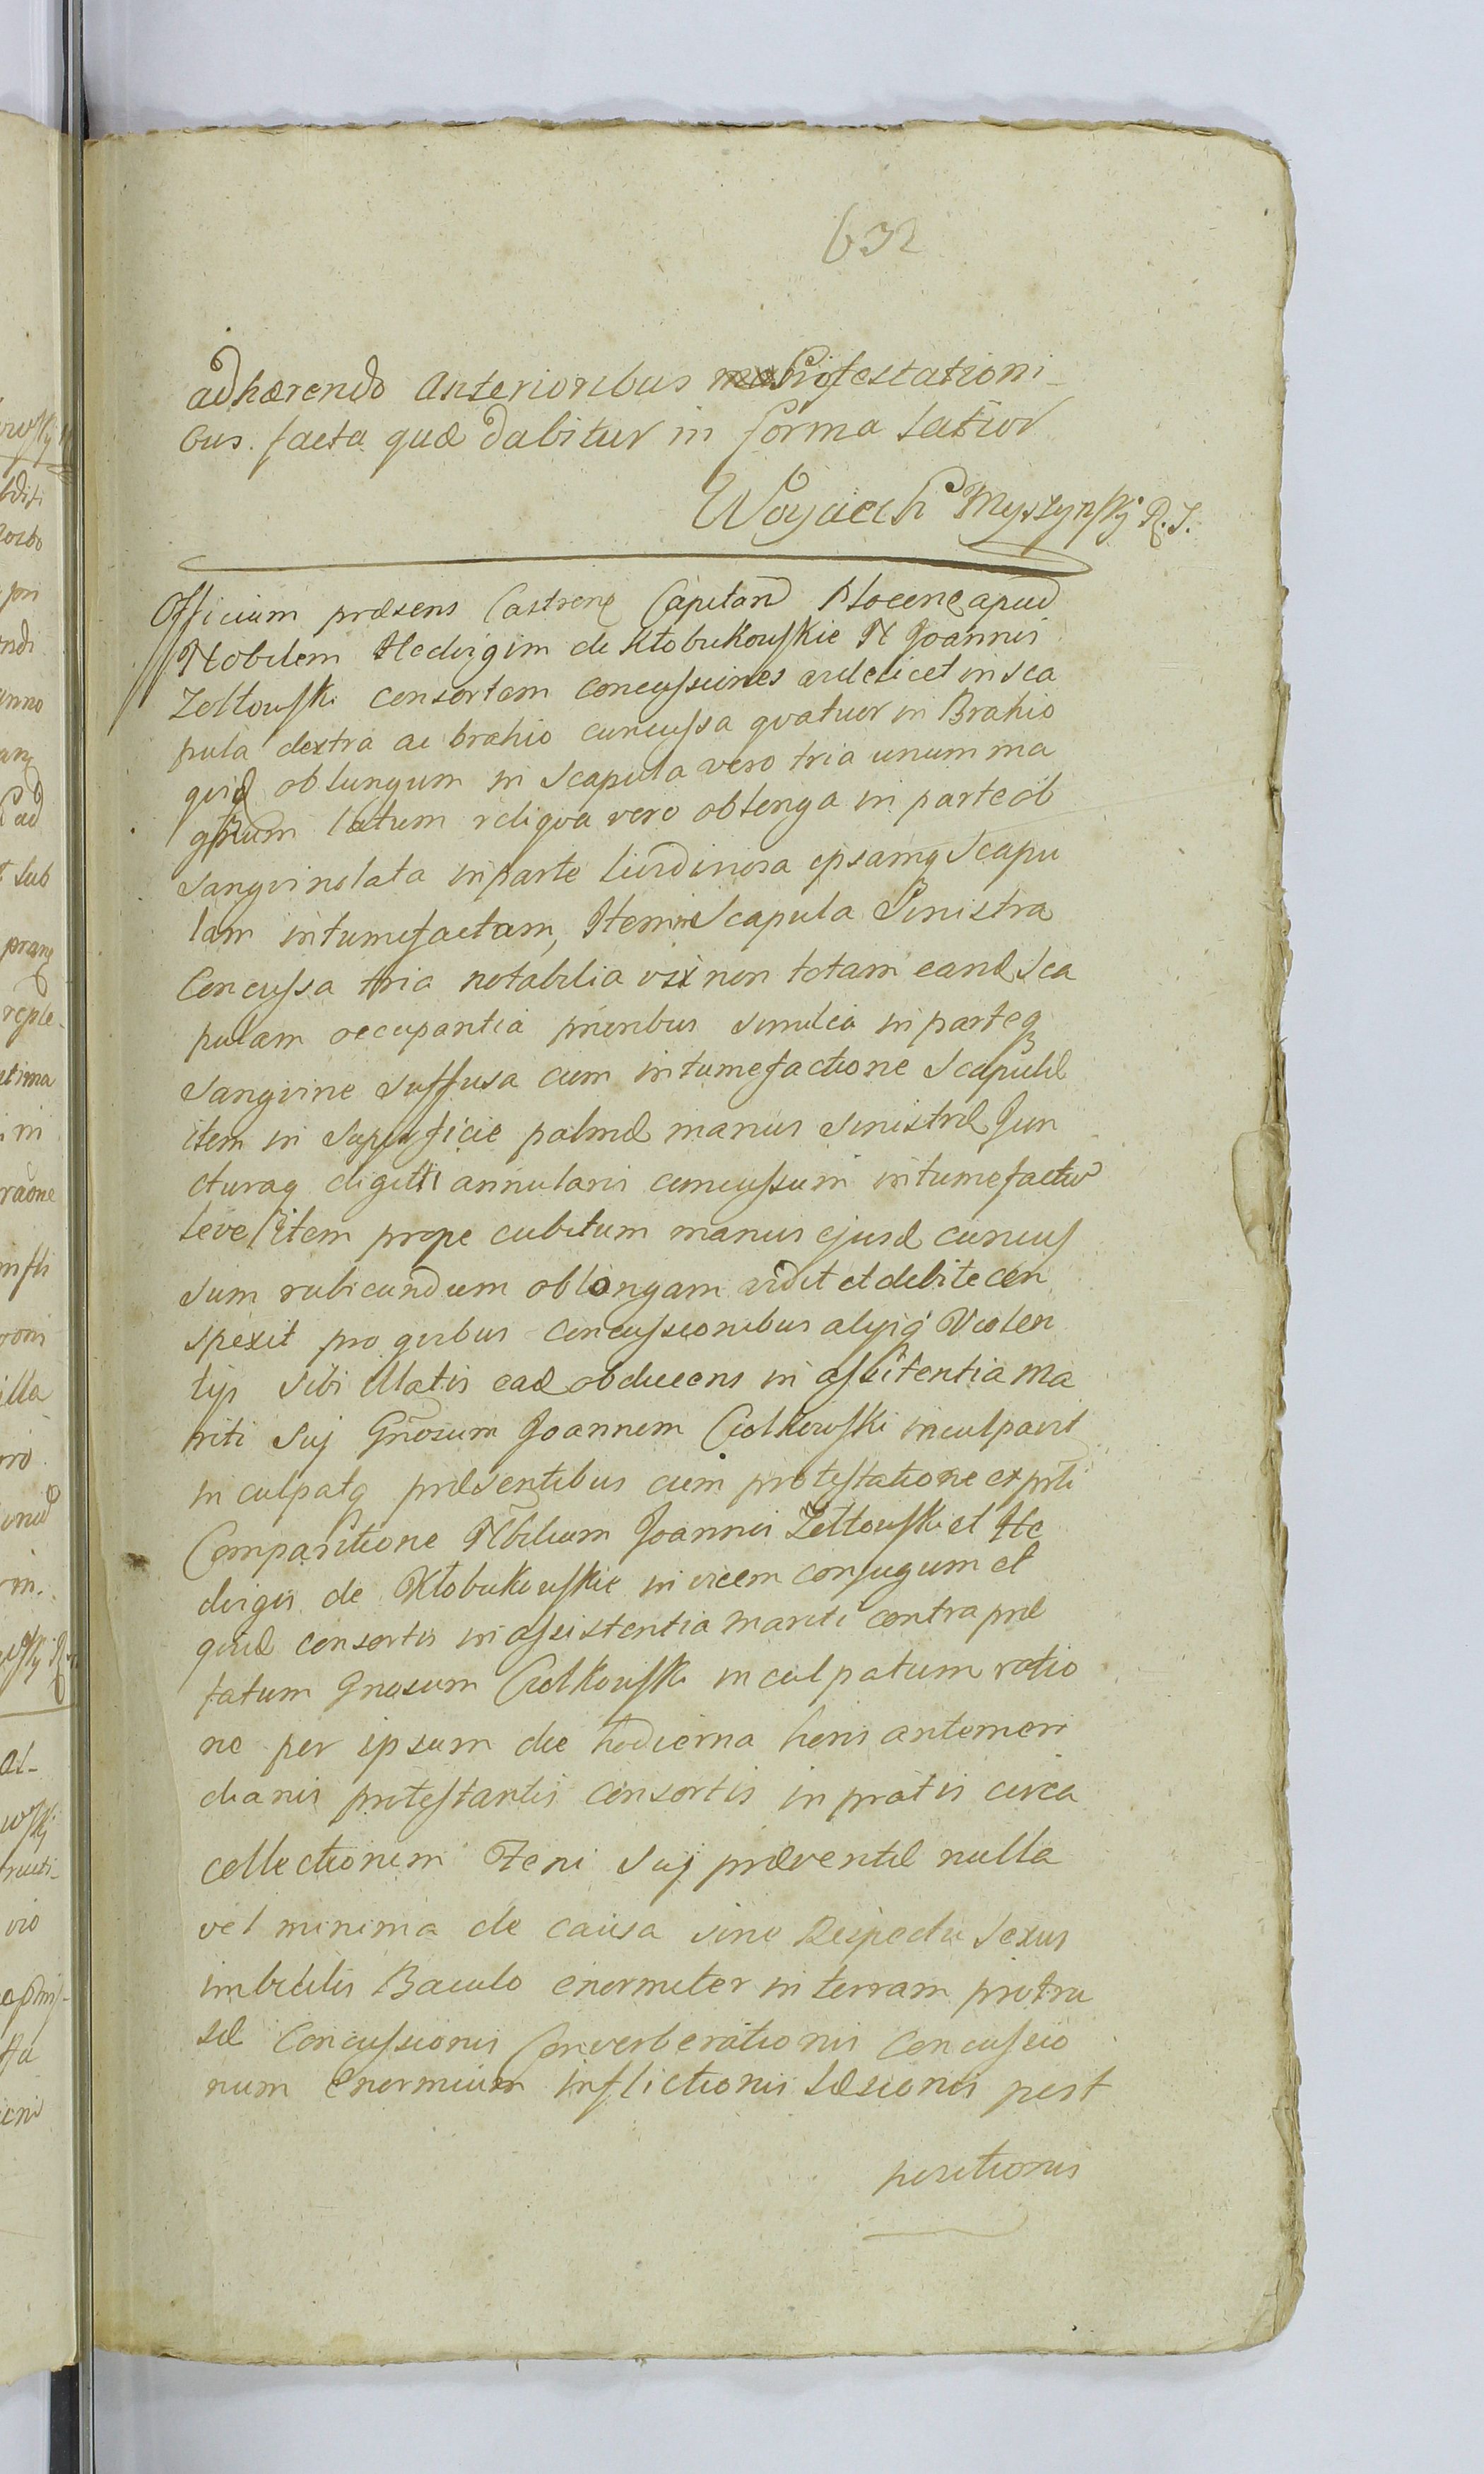 632
adhærendo anterioribus Protestationi-
bus facta quæ dabitur in forma latior
Woyciech Myszynsky R. I.
Officium præsens Castrenę Capitan Plocenę apud
Nobilem Hedvigim de Kłobukowskie N Joannis
Zołtowski consortem concussiones videlicet in sca
pula dextra ac brahio concussa quatuor in Brahio
quid oblungum in scapula vero tria unum ma
gnum latum reliqua vero oblonga in parte ob
sanguinolata in parte liudinosa ipsamq scapu
lam intumefactam, Item in scapula Sinistra
Concussa tria notabilia vix non totam eand sca
pulam occupantia prioribus similia in parteq
sanguine suffusa cum intumefactione scapulæ
item in superficie palmæ manus sinistræ Jun
cturaq digitti annularis concussum intumefactū
leve Item prope cubitum manus ejusd concus
sum rubicundum oblongam vidit et debite con
spexit pro quibus concussionibus alijsq Violen
tijs sibi illatis ead obducens in assistentia ma
riti suj Gnosum Joannem Ciolkowski inculpavit
inculpatq præsentibus cum protestatione ex prti
Comparitione Nbilium Joannis Zołtowski et He
dvigis de Kłobukowskie invicem conjugum et
quid consortis in assistentia mariti contra præ
fatum Gnosum Ciolkowski inculpatum ratio
ne per ipsum die hodierna horis antemeri
dianis protestantis consortis in pratis circa
collectionem Feni suj præventæ nulla
vel minima de causa sine Respectu sexus
imbecilis Baculo enormiter in terram protru
sæ Concussionis Converberationis Concussio
num Enormium inflictionis læsionis post
positionis